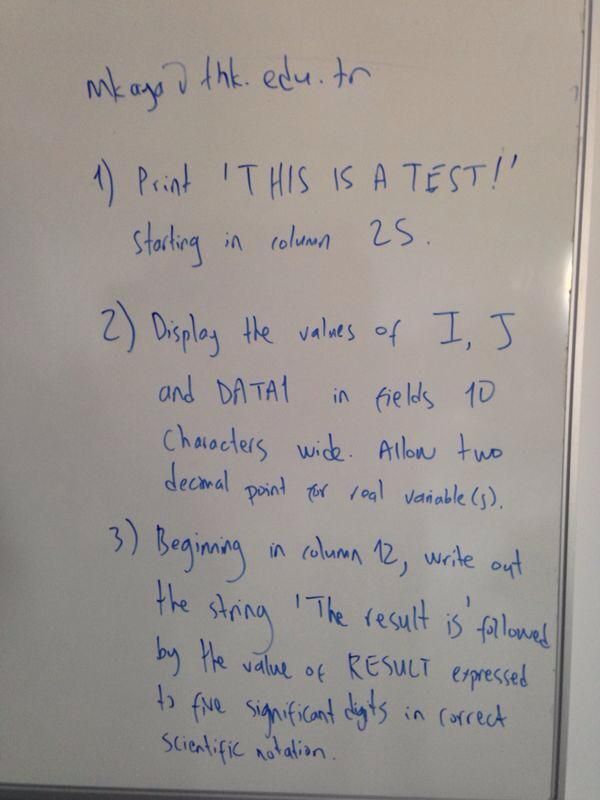 mkaya@thk.edu.tr
1) Print 'THIS IS A TEST!'
starting in column 25.
2) Display the values of I, J
and DATA1 in fields 10
characters wide. Allow two
decimal point for real variable(s).
3) Beginning in column 12, write out
the string 'The result is' followed
by the value of RESULT expressed
to five significant digits in correct
scientific notation.